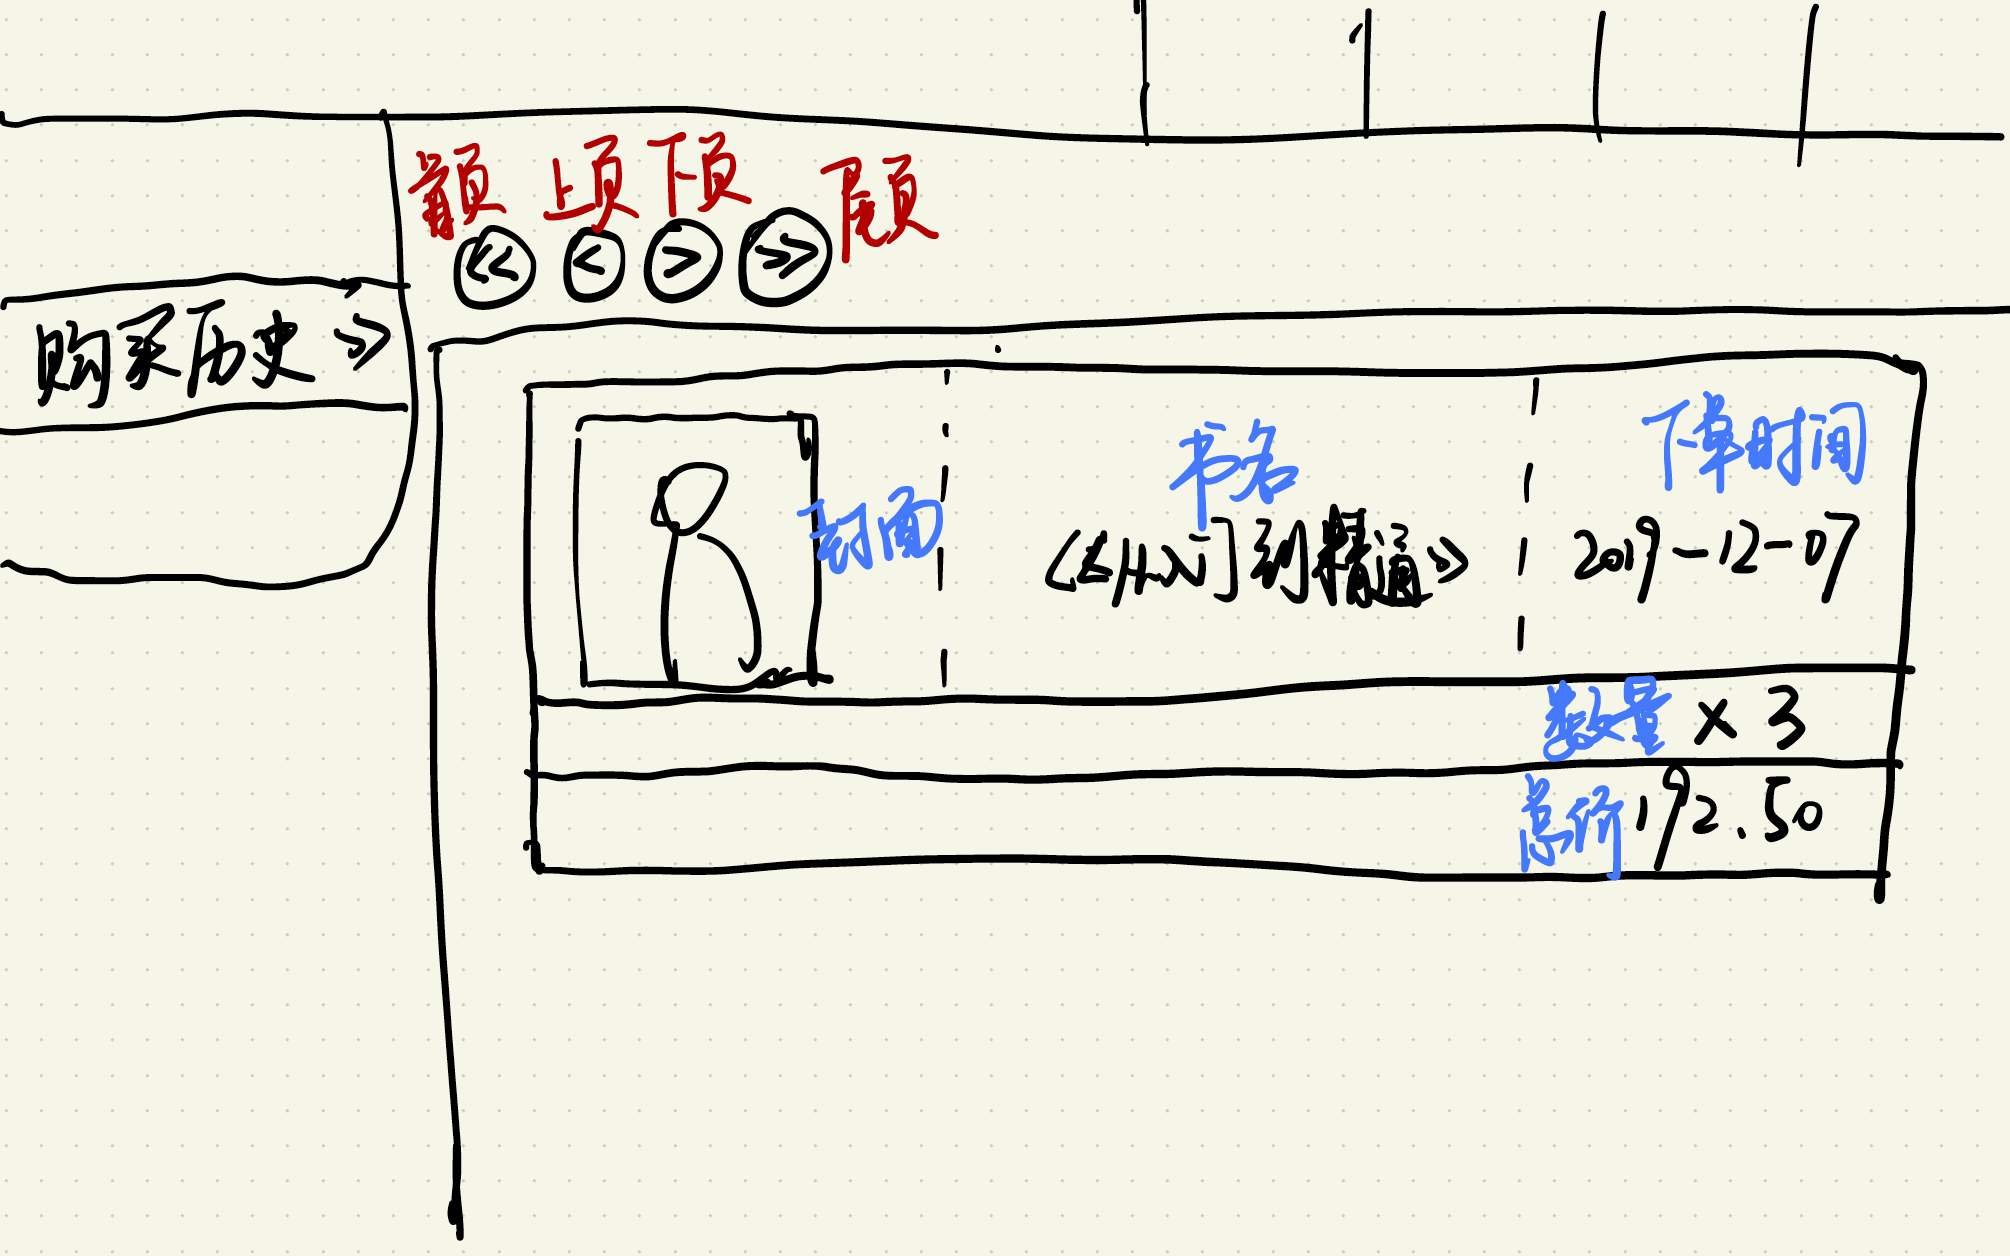 首页 上页 下页 尾页
<< < > >>
购买历史 >>
封面
书名
下单时间
入门到精通》
2019-12-07
数量 × 3
总价 192.50